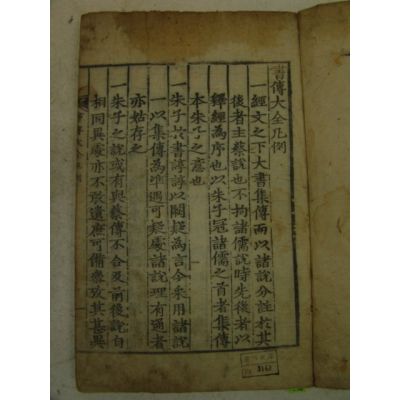 書傳大全凡例
一經文之下大書集傳而以諸說分註於其
後者主蔡說也不拘諸儒說時先後者以
釋經為序也以朱子冠諸儒之首者集傳
本朱子之意也
一朱子於書諄諄以闕疑為言今采用諸說
一以集傳為準遇可疑處諸說理有通者
亦姑存之
一朱子之說或有與蔡傳不合及前後說自
相同異處亦不敢遺庶可備參考其甚異
書傳大全凡例
3162